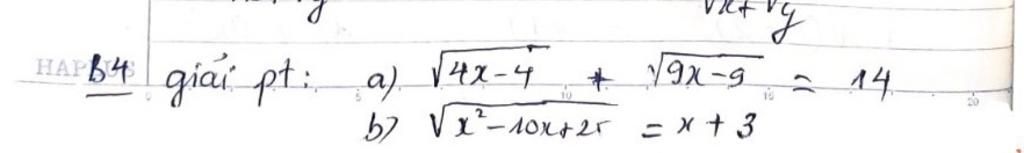 √x + √y
B4 giải pt: a) √(4x-4) + √(9x-9) = 14
b) √(x²-10x+25) = x + 3